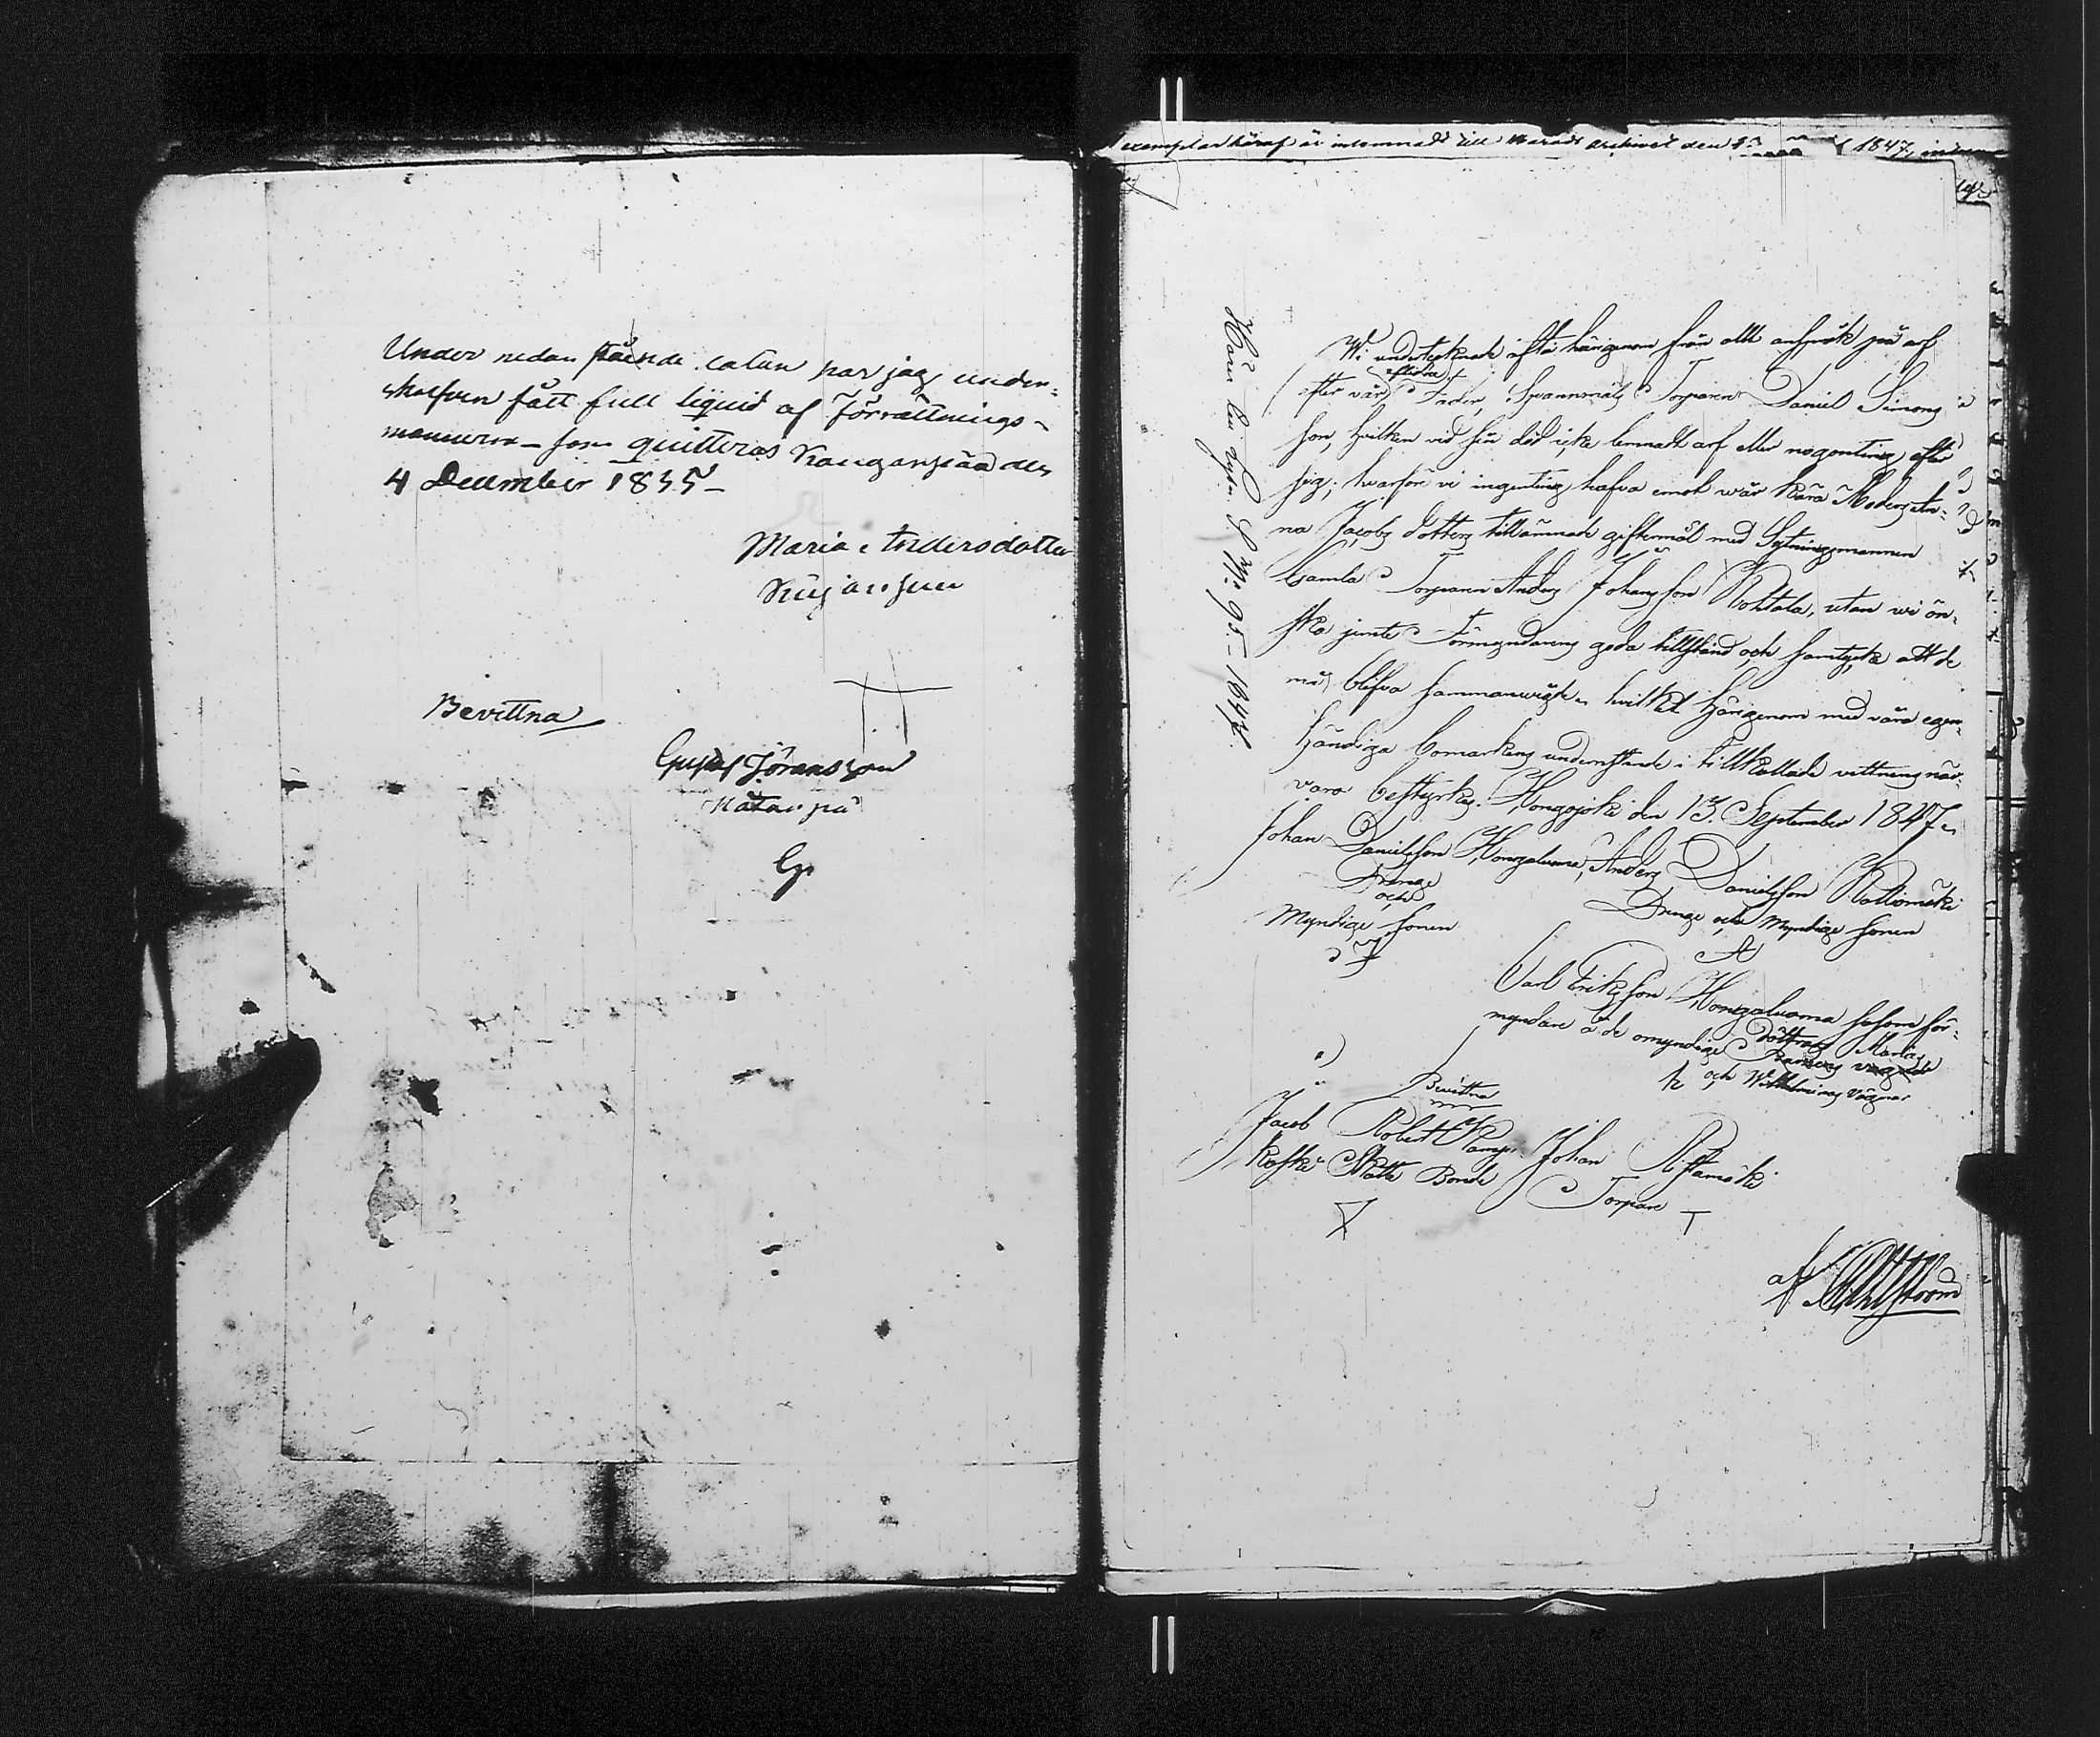 Under nedan stående datun har jag under-
skrefven fått full liquid af Förrättnings-
mannern som quitteras Kangaspää den
4 December 1855
Maria Andersdotter
Bevittna
Gustaf Göransson
G.
exemplar häraf är inlemnadt till Härads archivet den 1847,
Wi undertecknade afstå härigenom från allt anspråk på arf
aflidne
efter vår Fader, Spannmåls Torparen Daniel Simons
son, hvilken vid sin död icke lemnadt arf eller nogonting efter
sig; hvarföre vi ingenting hafva emot wår kära Moders An-
na Jacobs dotters tillämnade giftermål med Sytningsmannen
Gamla Torparen Anders Johansson Kohtala, utan wi ön-
ska jemte Förmyndarens goda tillstånd och samtycke att de
må blifva sammanvigde, hvilket härigenom med våra egen-
händiga bomärkens understående i tillkallade vittnens när-
varo bestyrkes. Hongojoki den 13. September 1847.
Johan Danielsson Hongaluoma, Anders Danielsson Kalliomäki
Drenge
och
Myndige sonen
Drenge och Myndige sonen
A
Carl Eriksson Hongaluoma såsom för-
myndare å de omyndige
döttrars Marias
och Wilhelminas vägnar
Bevittna
Jacob Robert Kamp. Johan Ristamäki
Koski Skatte Bonde Torpare
af